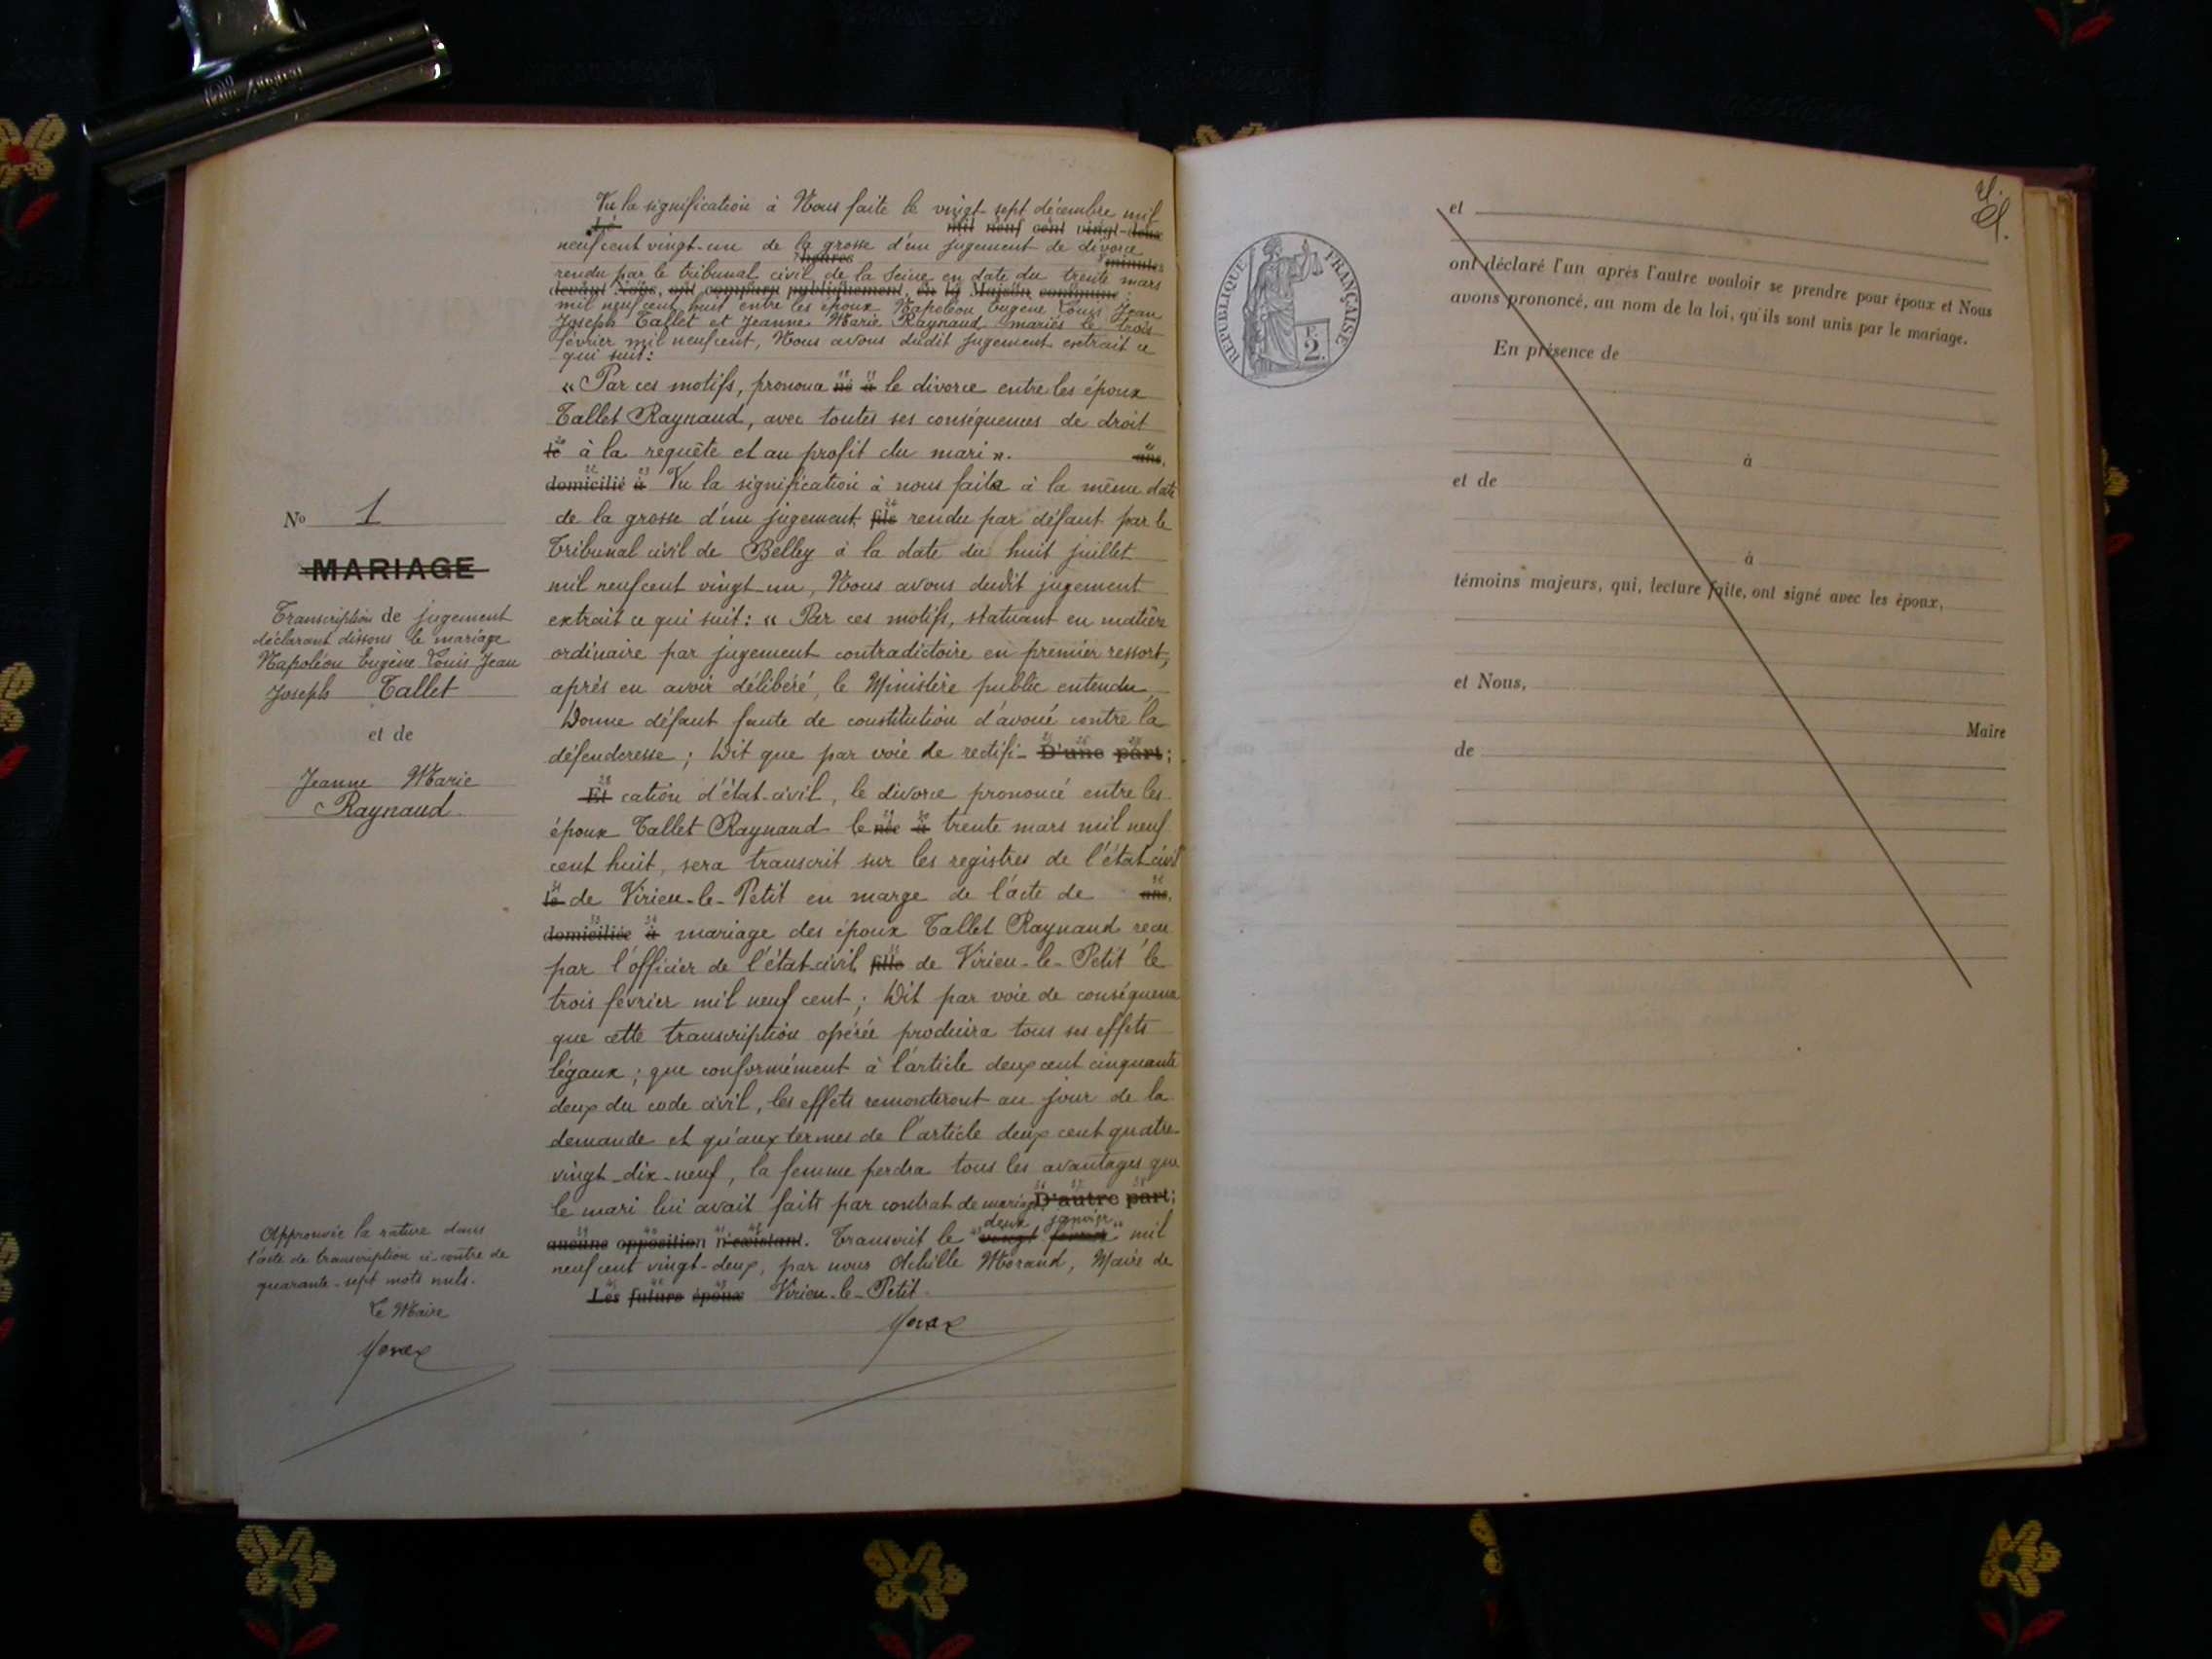 N° 1
MARIAGE
Transcription de jugement
déclarant dissous le mariage
Napoléon Eugène Louis Jean
Joseph Tallet
et de
Jeanne Marie
Raynaud.
Approuvée la rature dans
l'acte de transcription ci-contre de
quarante-sept mots nuls.
Le Maire
Vu la signification à Nous faite le vingt-sept décembre mil
Le mil neuf cent vingt-deux
neuf cent vingt-un de la grosse d'un jugement de divorce
heures minutes
rendu par le tribunal civil de la Seine en date du trente mars
devant Nous, ont comparu publiquement, en la Maison commune :
mil neuf cent huit entre les époux Napoléon Eugène Louis Jean
Joseph Tallet et Jeanne Marie Raynaud mariés le trois
février mil neuf cent, Nous avons dudit jugement extrait ce
qui suit :
« Par ces motifs, prononce né à le divorce entre les époux
Tallet Raynaud, avec toutes ses conséquences de droit
le à la requête et au profit du mari ». ans,
domicilié à Vu la signification à nous faite à la même date
de la grosse d'un jugement fils rendu par défaut par le
Tribunal civil de Belley à la date du huit juillet
mil neuf cent vingt-un, Nous avons dudit jugement
extrait ce qui suit : « Par ces motifs, statuant en matière
ordinaire par jugement contradictoire en premier ressort,
après en avoir délibéré, le Ministère public entendu,
Donne défaut faute de constitution d'avoué contre la
défenderesse ; Dit que par voie de rectifi- D'une part ;
Et cation d'état-civil, le divorce prononcé entre les
époux Tallet Raynaud le née à trente mars mil neuf
cent huit, sera transcrit sur les registres de l'état civil
le de Virieu-le-Petit en marge de l'acte de ans,
domiciliée à mariage des époux Tallet Raynaud reçu
par l'officier de l'état-civil fille de Virieu-le-Petit le
trois février mil neuf cent ; Dit par voie de conséquence
que cette transcription opérée produira tous ses effets
légaux ; que conformément à l'article deux cent cinquante
deux du code civil, les effets remonteront au jour de la
demande et qu'aux termes de l'article deux cent quatre-
vingt-dix-neuf, la femme perdra tous les avantages que
le mari lui avait faits par contrat de mariage D'autre part ;
deux janvier
aucune opposition n'existant. Transcrit le vingt mil
neuf cent vingt-deux, par nous Achille Morand, Maire de
Les futurs époux Virieu-le-Petit.
RÉPUBLIQUE FRANÇAISE
F.
2.
et
ont déclaré l'un après l'autre vouloir se prendre pour époux et Nous
avons prononcé, au nom de la loi, qu'ils sont unis par le mariage.
En présence de
à
et de
à
témoins majeurs, qui, lecture faite, ont signé avec les époux,
et Nous,
Maire
de